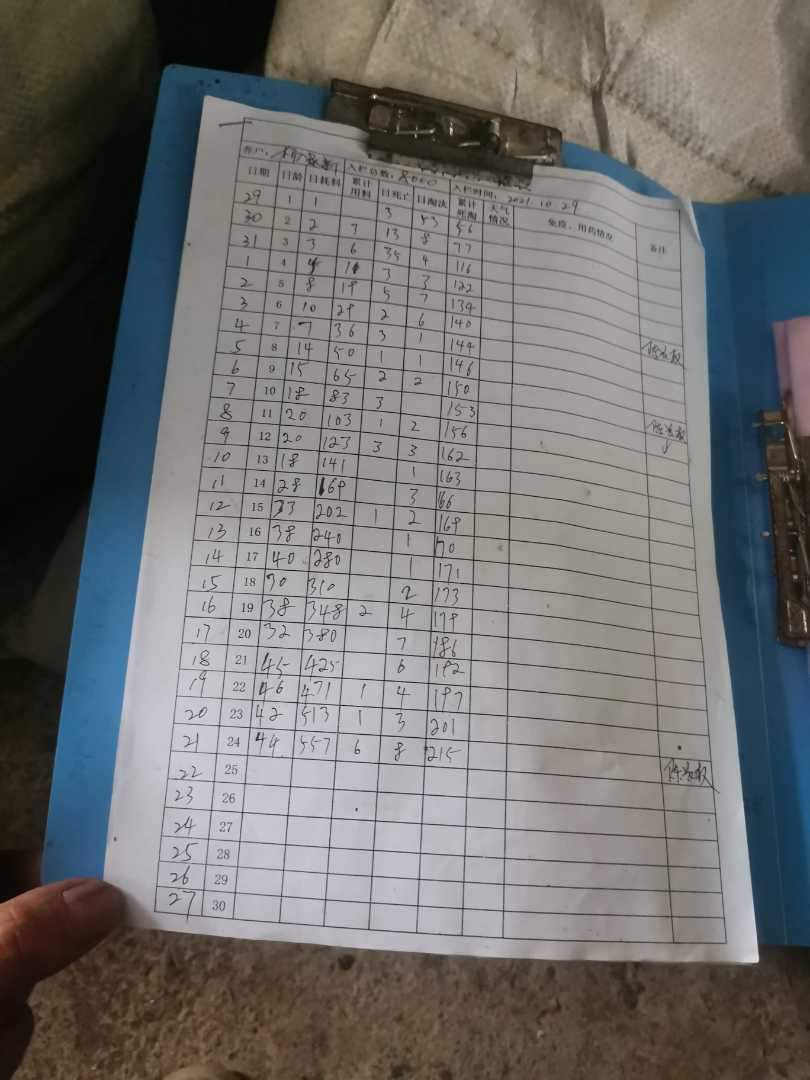 养户： 入栏总数：8000 入栏时间：2021.10.29
日期 日龄 日耗料 累计用料 日死亡 日淘汰 累计死淘 天气情况 免疫、用药情况 备注
29 1 1 3 53 56
30 2 2 3 13 8 77
31 3 3 6 35 4 116
1 4 5 11 3 3 122
2 5 8 19 5 7 134
3 6 10 29 2 6 140
4 7 7 36 3 1 144
5 8 14 50 1 1 146
6 9 15 65 2 2 150
7 10 18 83 3 153
8 11 20 103 1 2 156
9 12 20 123 3 3 162
10 13 18 141 1 163
11 14 28 169 3 166
12 15 33 202 1 2 169
13 16 38 240 1 170
14 17 40 280 1 171
15 18 30 310 2 173
16 19 38 348 2 4 179
17 20 32 380 7 186
18 21 45 425 6 192
19 22 46 471 1 4 197
20 23 42 513 1 3 201
21 24 44 557 6 8 215
22 25
23 26
24 27
25 28
26 29
27 30